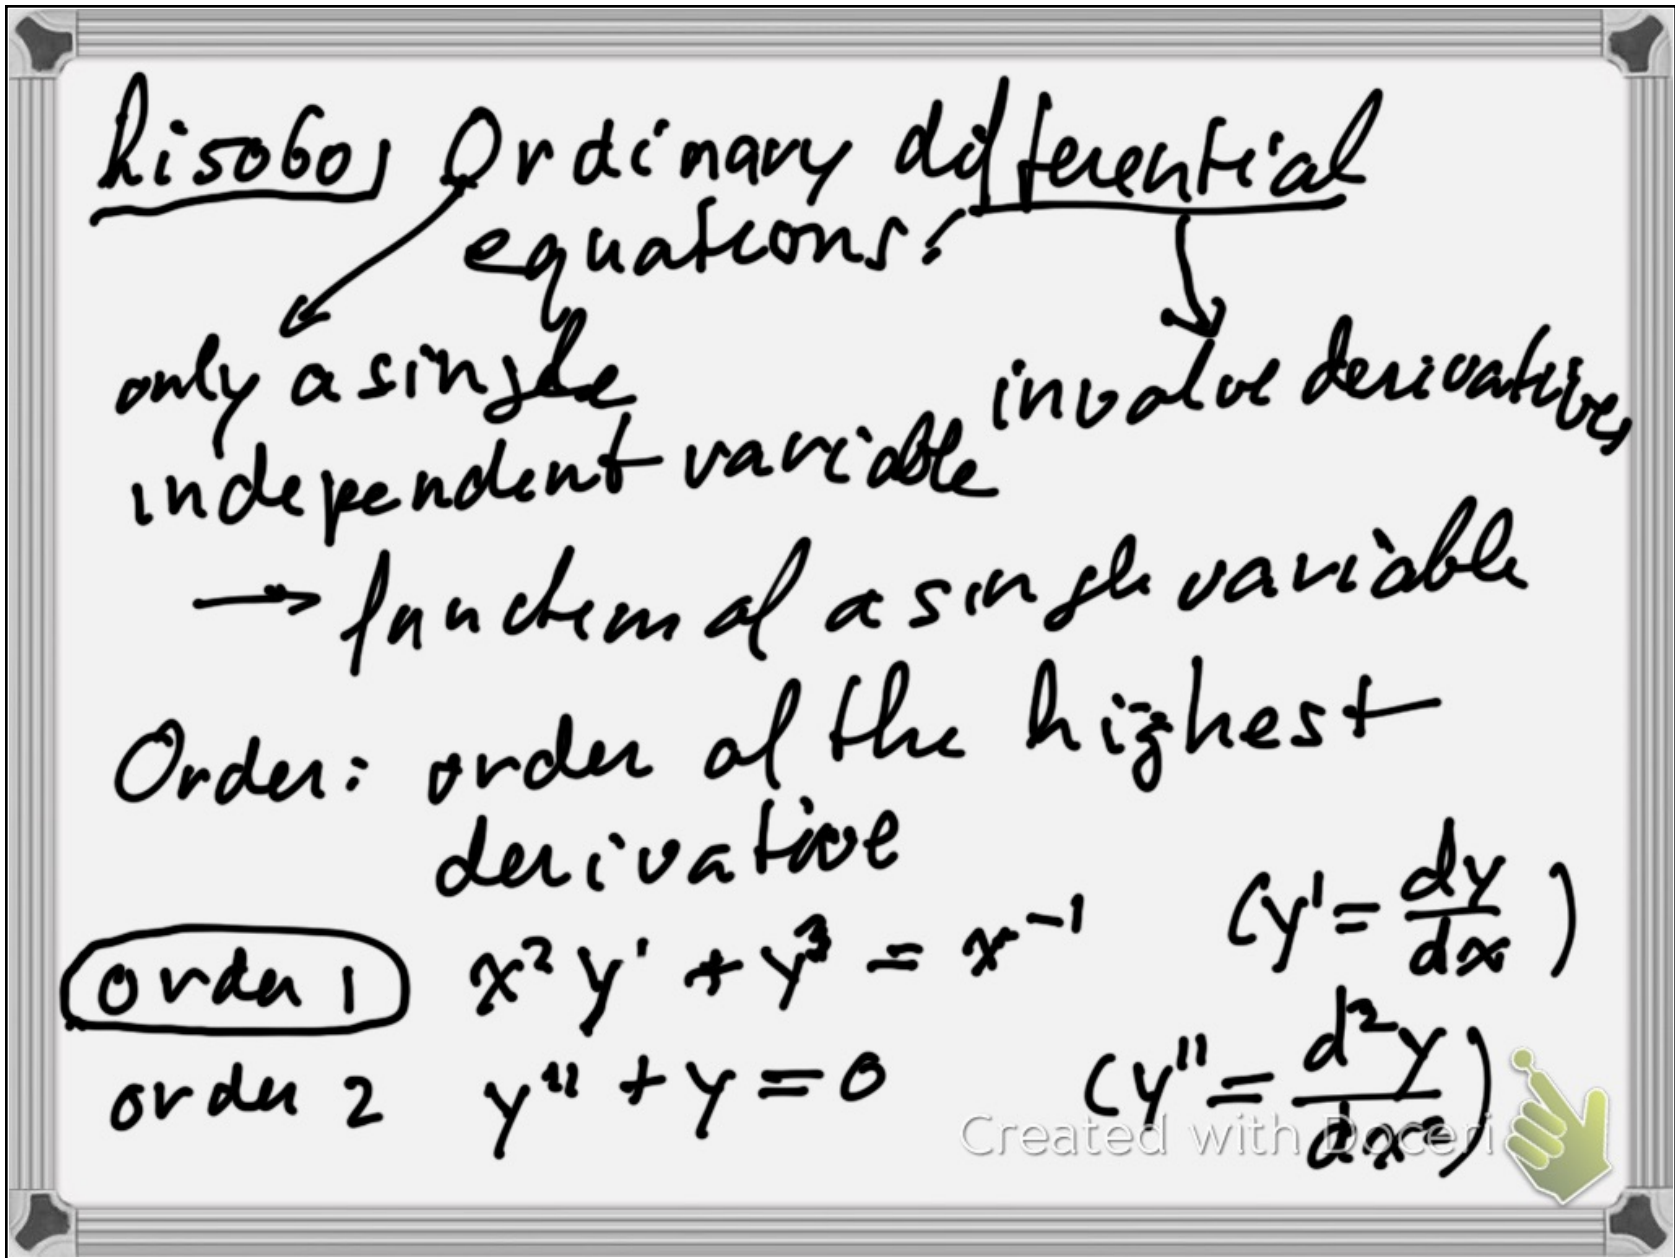 Ordinary differential
equations:
only a single involve derivatives
independent variable
→ function of a single variable
Order: order of the highest
derivative
order 1 x² y' + y³ = x⁻¹ (y' = dy/dx)
order 2 y'' + y = 0 (y'' = d²y/dx²)
Created with Doceri